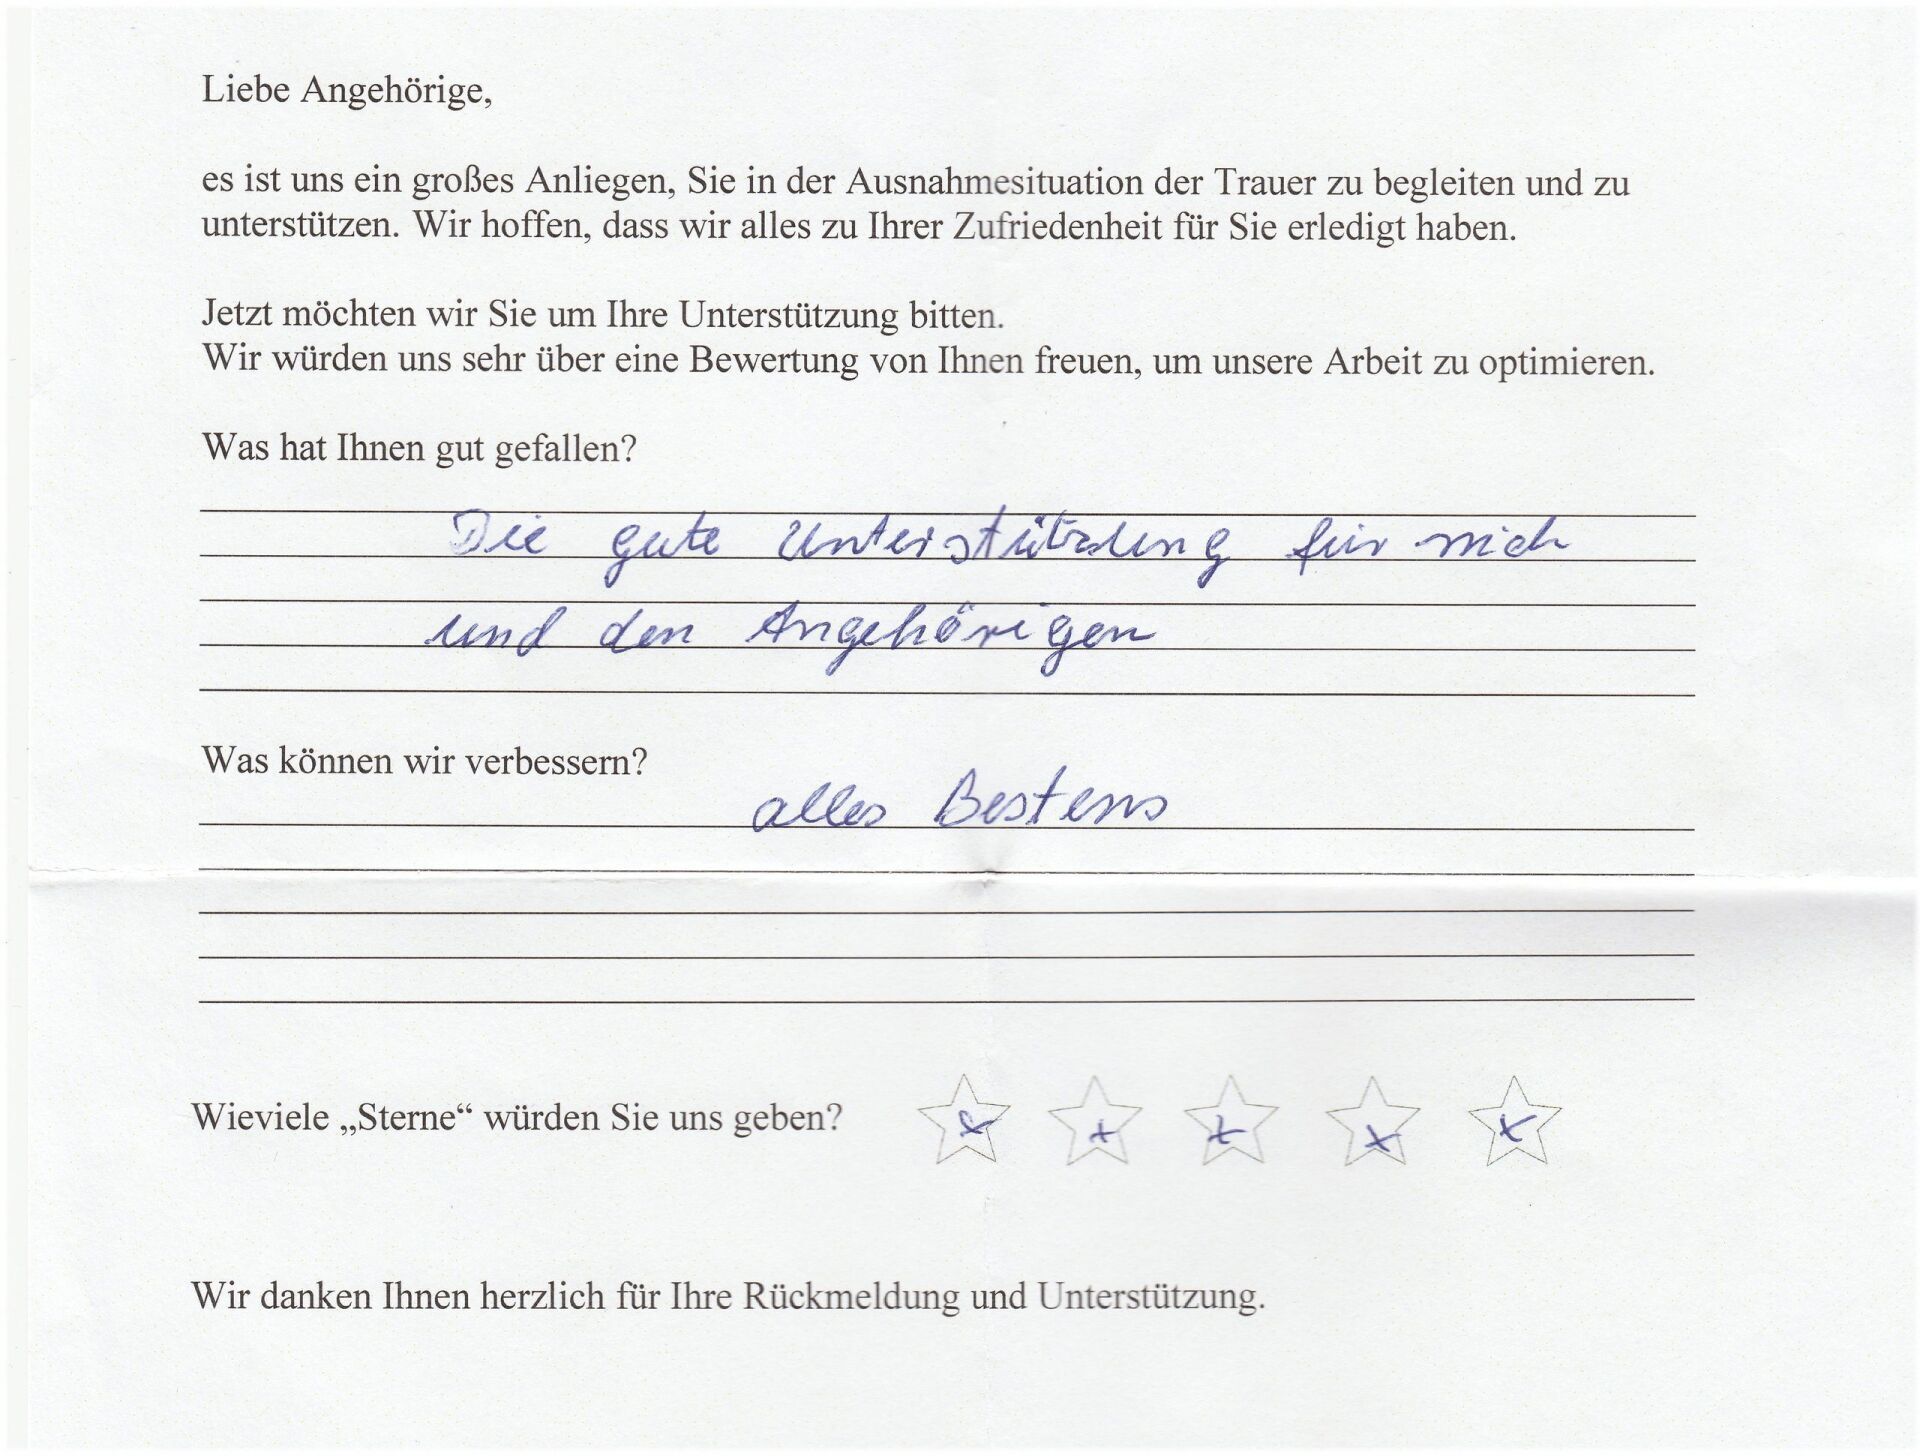 Liebe Angehörige,
es ist uns ein großes Anliegen, Sie in der Ausnahmesituation der Trauer zu begleiten und zu
unterstützen. Wir hoffen, dass wir alles zu Ihrer Zufriedenheit für Sie erledigt haben.
Jetzt möchten wir Sie um Ihre Unterstützung bitten.
Wir würden uns sehr über eine Bewertung von Ihnen freuen, um unsere Arbeit zu optimieren.
Was hat Ihnen gut gefallen?
Die gute Unterstützung für mich
und den Angehörigen
Was können wir verbessern?
alles Bestens
Wieviele „Sterne“ würden Sie uns geben?
Wir danken Ihnen herzlich für Ihre Rückmeldung und Unterstützung.